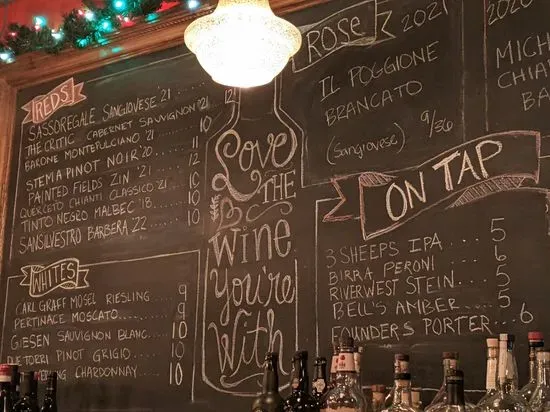 REDS
SASSOREGALE SANGIOVESE '21
THE CRITIC CABERNET SAUVIGNON '21 12
BARONE MONTEPULCIANO '21 10
STEMA PINOT NOIR '20 .... 11
PAINTED FIELDS ZIN '21 .... 12
QUERCETO CHIANTI CLASSICO '21 . 10
TINTO NEGRO MALBEC '18 .... 10
SANSILVESTRO BARBERA '22 .... 10
WHITES
CARL GRAFF MOSEL RIESLING .... 9
PERTINACE MOSCATO ...... 9
GIESEN SAUVIGNON BLANC .. 10
DUE TORRI PINOT GRIGIO ..... 10
CHARDONNAY .... 10
Love
THE
Wine
You're
With
ROSE 2021
IL POGGIONE
BRANCATO
(Sangiovese) 9/36
2020
MICH
CHIAN
BA
ON TAP
3 SHEEPS IPA .... 5
BIRRA PERONI .... 6
RIVERWEST STEIN .... 5
BELL'S AMBER .... 5
FOUNDERS PORTER .. 6